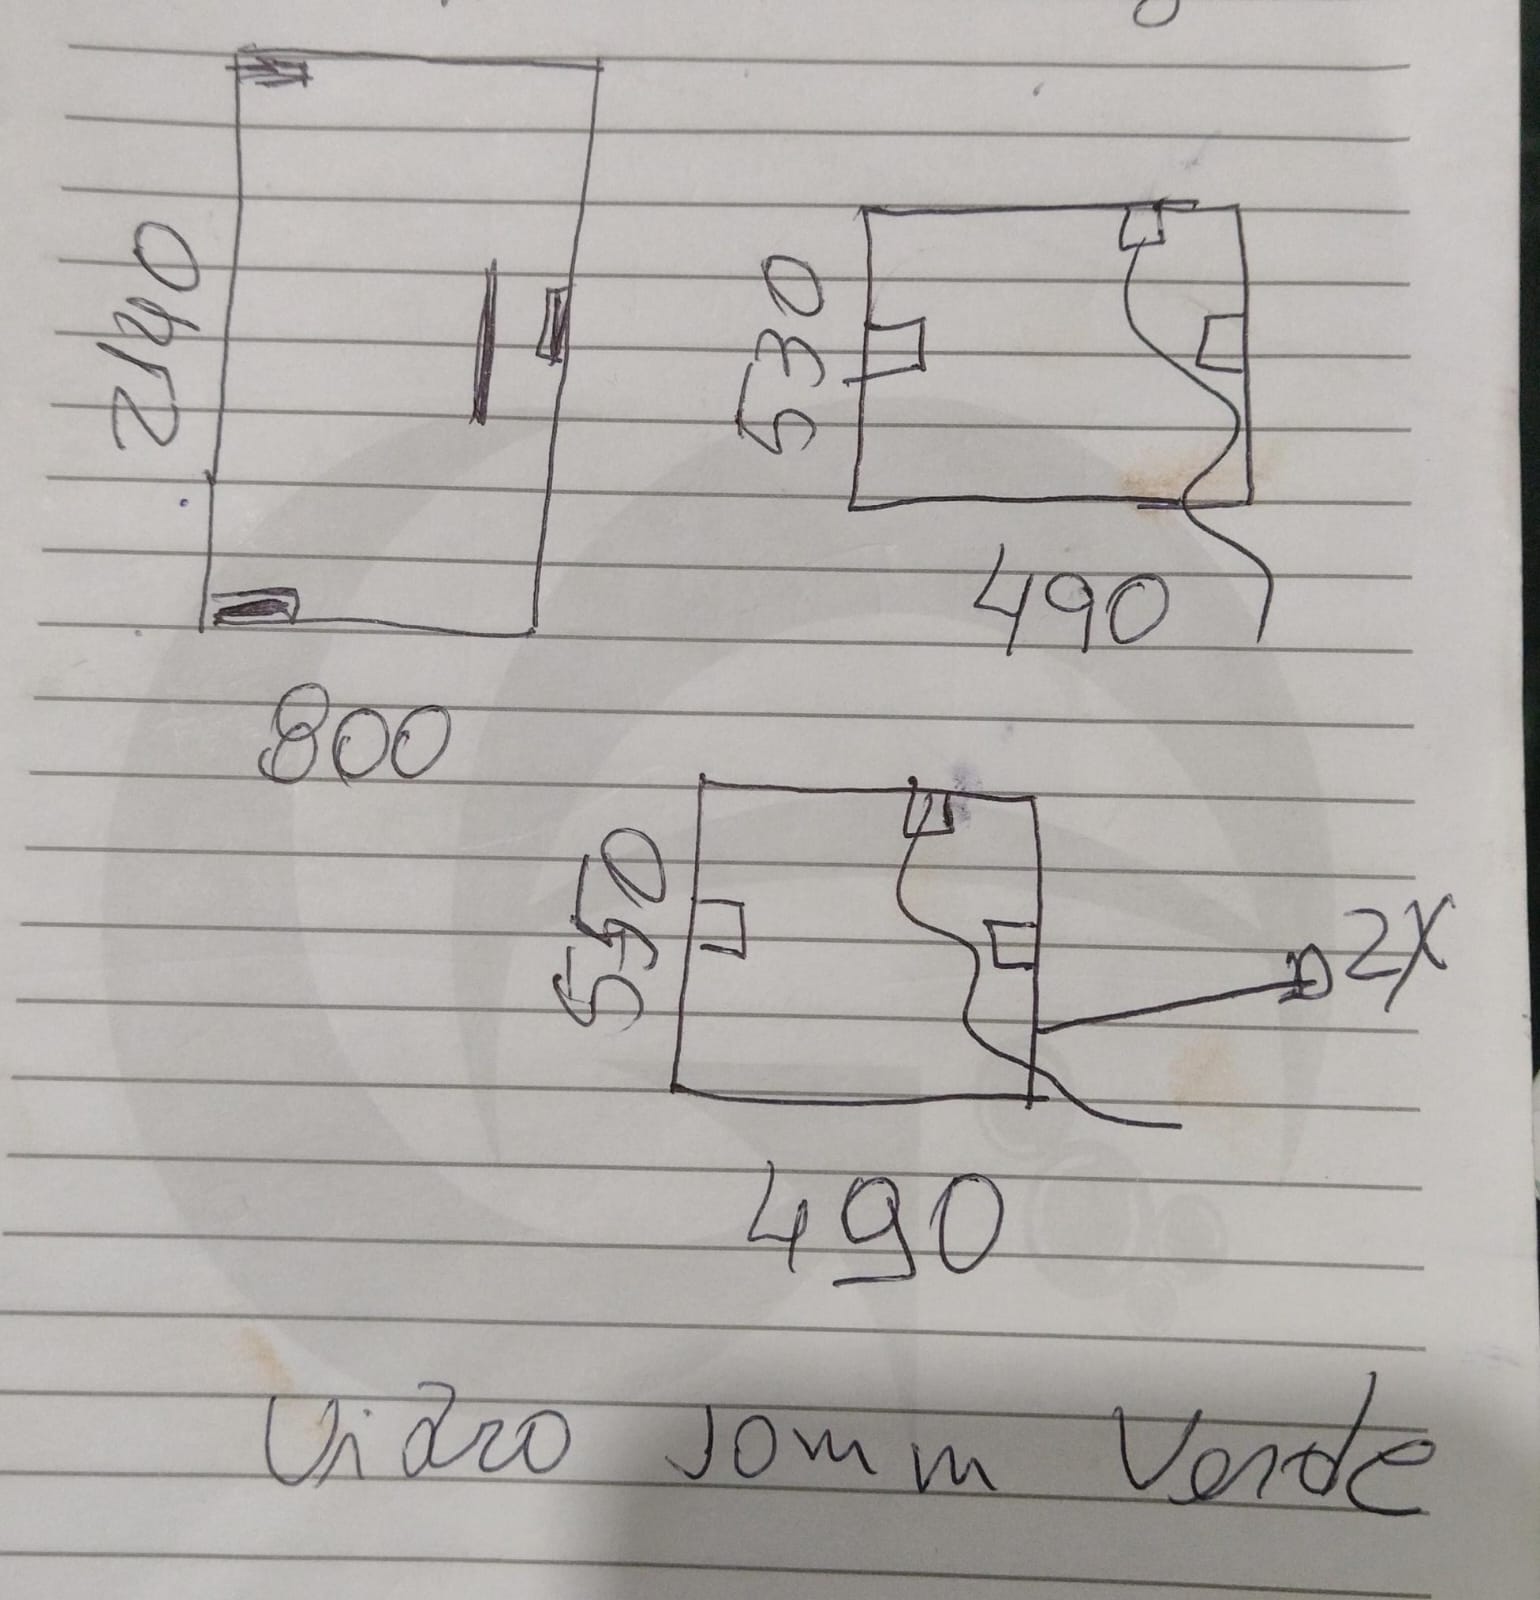 2140
530
490
800
550
2X
490
Vidro 10mm Verde